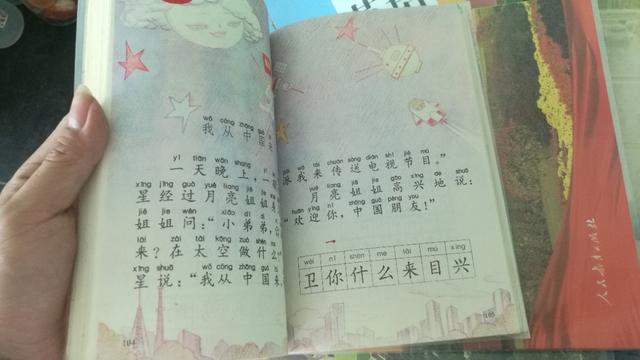 wǒ cóng zhōng guó
我从中国来
yì tiān wǎn shang
一天晚上，一
xīng jīng guò yuè liang jiě
星经过月亮姐
jiě jie wèn xiǎo dì di
姐姐问：“小弟弟，
lái zài tài kōng zuò shén
来？在太空做什么
xīng shuō wǒ cóng zhōng guó
星说：“我从中国来，
104
wǒ lái chuán sòng diàn shì jié mù
派我来传送电视节目。”
yuè liang jiě jie gāo xìng de shuō
月亮姐姐高兴地说：
huān yíng nǐ zhōng guó péng you
“欢迎你，中国朋友！”
wèi nǐ shén me lái mù xìng
卫你什么来目兴
105
人民教育出版社